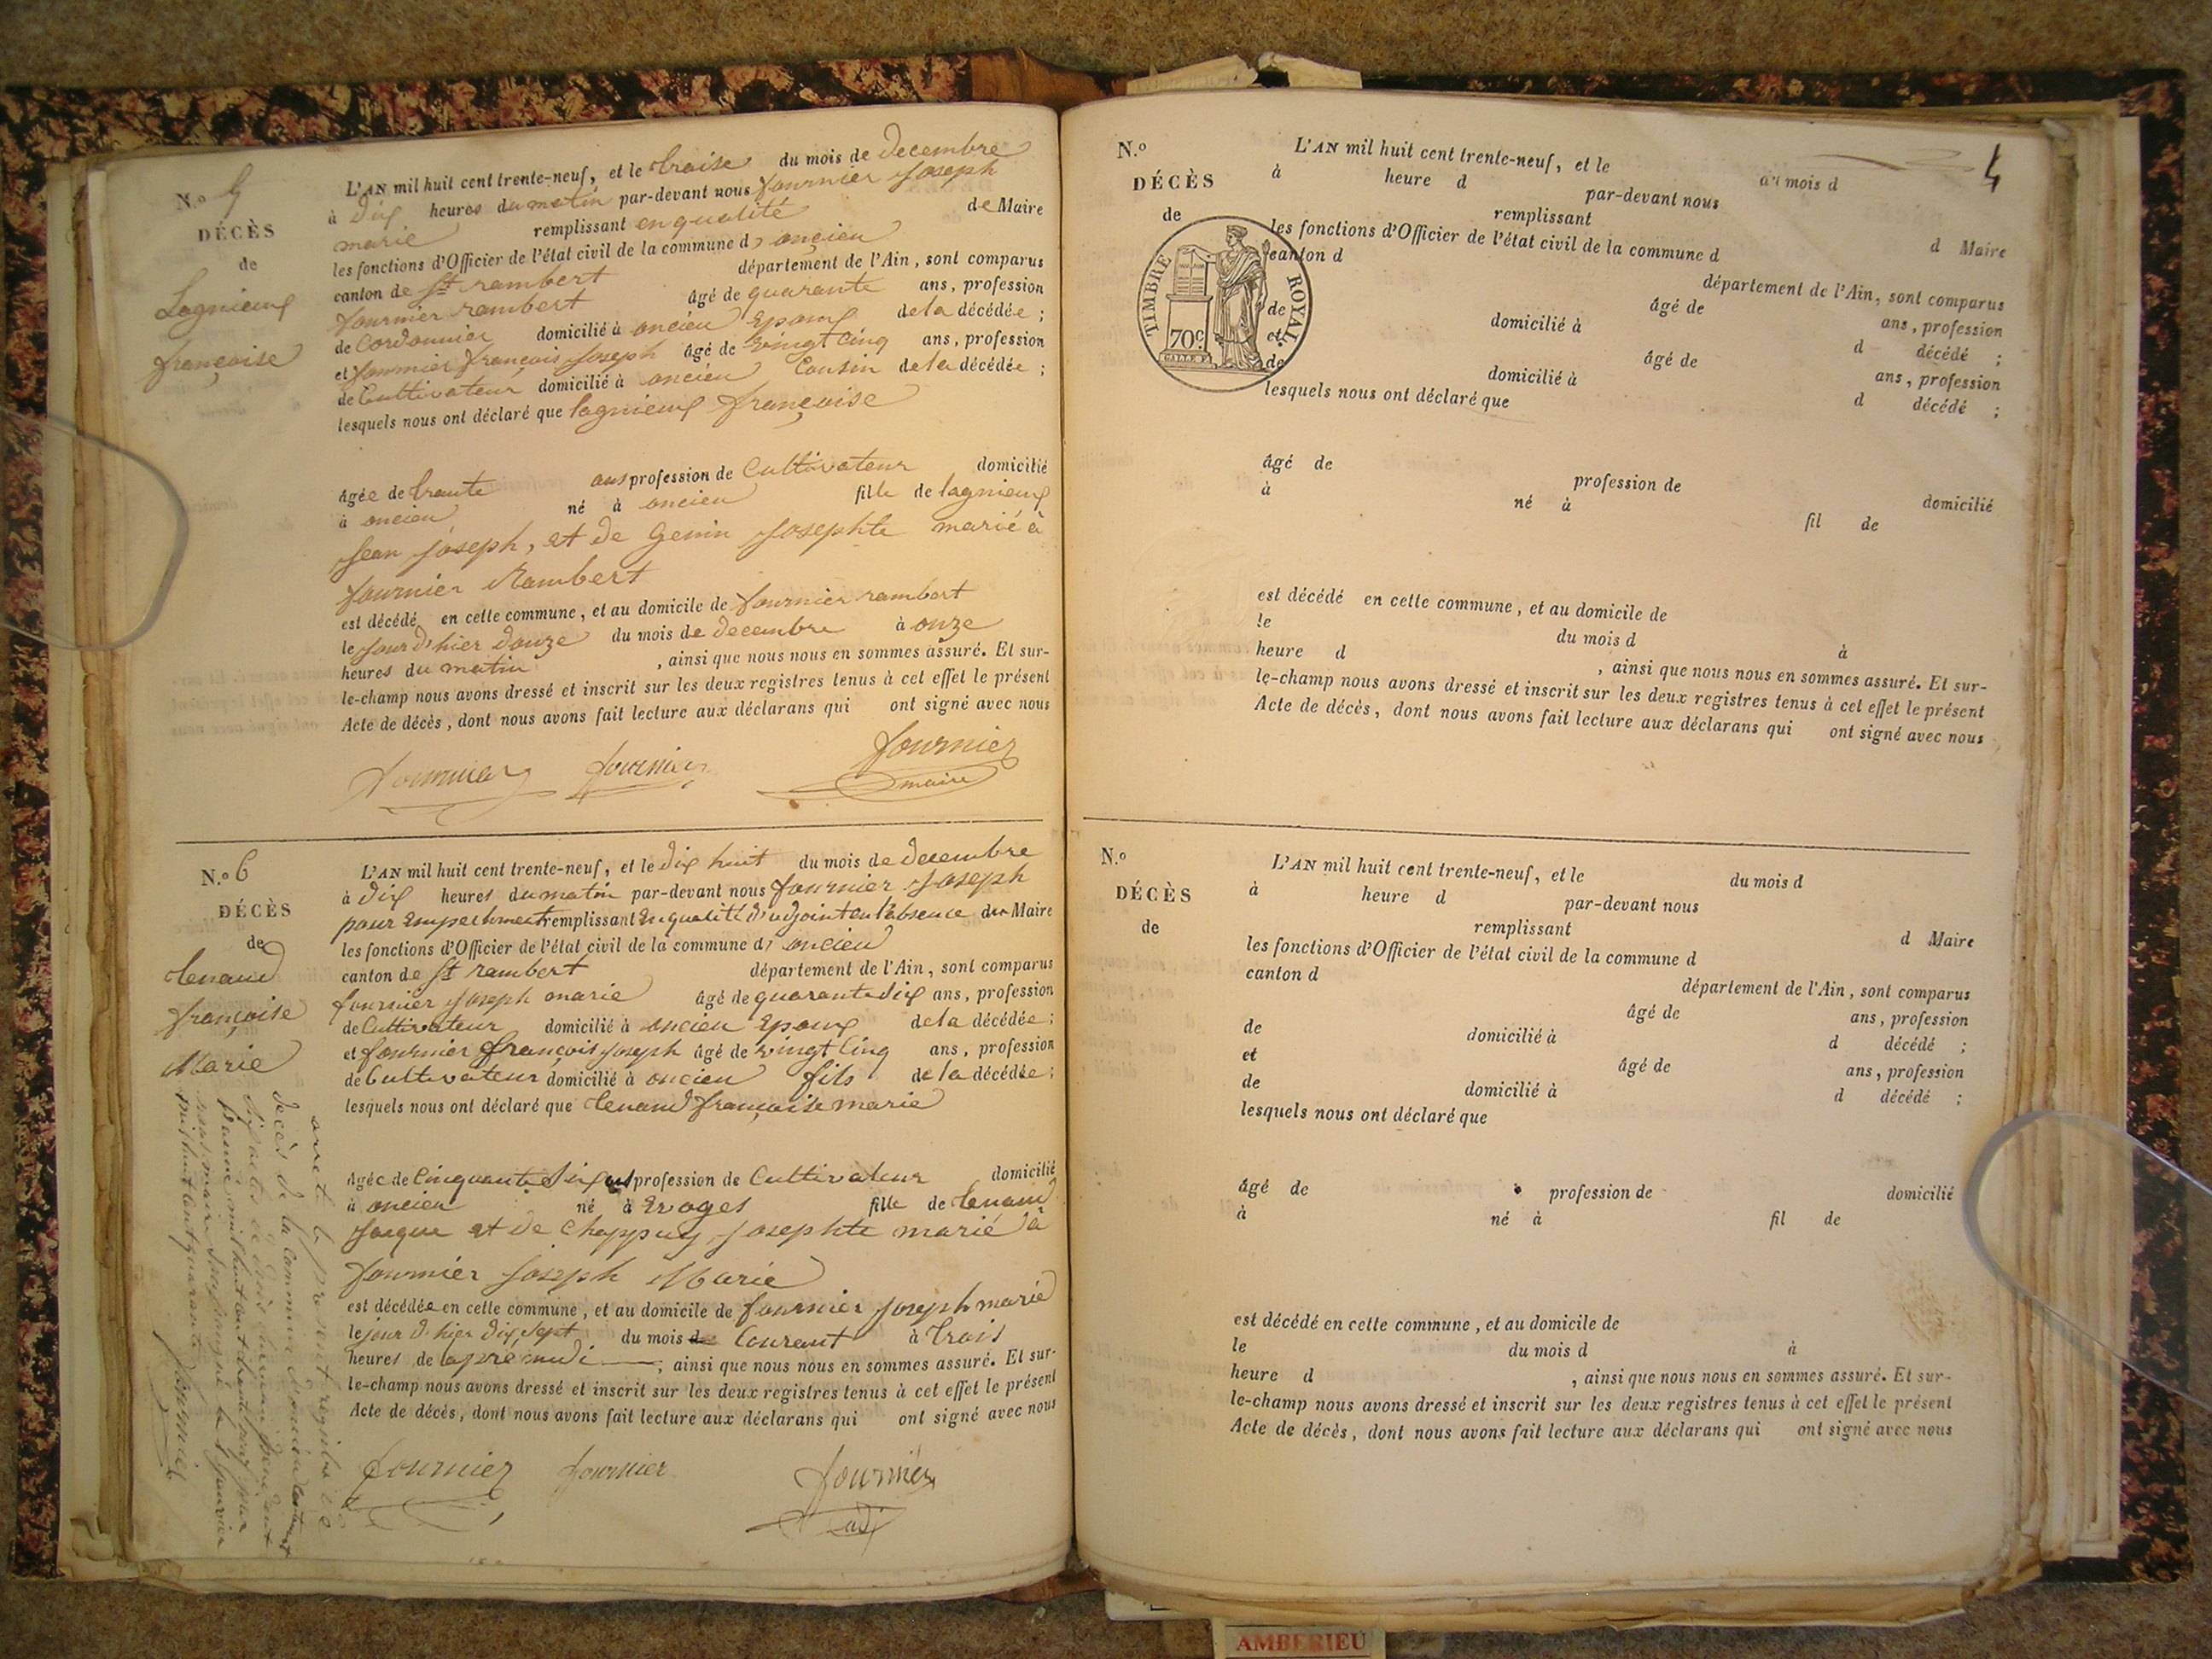 N.o 5
DÉCÈS
de
Lagnieux
françoise
L'AN mil huit cent trente-neuf, et le traise du mois de decembre
à dix heures du matin par-devant nous fournier Joseph
marie remplissant en qualité de Maire
les fonctions d'Officier de l'état civil de la commune d, oncieu
canton de St rambert département de l'Ain, sont comparus
fournier rambert âgé de quarante ans, profession
de Cordonnier domicilié à oncieu Epoux de la décédée ;
et fournier francois Joseph âgé de vingt cinq ans, profession
de Cultivateur domicilié à oncieu Cousin de la décédée ;
lesquels nous ont déclaré que lagnieux françoise
âgée de trente ans profession de Cultivateur domicilié
à oncieu né à oncieu fille de lagnieux
Jean Joseph, et de Genin Josephte marié à
fournier Rambert
est décédé en cette commune, et au domicile de fournier rambert
le Jour d'hier douze du mois de decembre à onze
heures du matin , ainsi que nous nous en sommes assuré. Et sur-
le-champ nous avons dressé et inscrit sur les deux registres tenus à cet effet le présent
Acte de décès, dont nous avons fait lecture aux déclarans qui ont signé avec nous
fournier fournier fournier
maire
N.o 6
DÉCÈS
de
tenand
françoise
Marie
L'AN mil huit cent trente-neuf, et le dix huit du mois de decembre
à dix heures du matin par-devant nous fournier Joseph
pour Empechment remplissant En qualité d'adjoint en l'absence du Maire
les fonctions d'Officier de l'état civil de la commune d, oncieu
canton de St rambert département de l'Ain, sont comparus
fournier Joseph marie âgé de quarante dix ans, profession
de Cultivateur domicilié à oncieu Epoux de la décédée ;
et fournier françois Joseph âgé de vingt Cinq ans, profession
de Cultivateur domicilié à oncieu fils de la décédée ;
lesquels nous ont déclaré que tenand françoise marie
âgée de Cinquante Six ans profession de Cultivateur domicilié
à oncieu né à Evoges fille de tenand
Jacque et de Chappuy Josephte marié à
fournier Joseph Marie
est décédée en cette commune, et au domicile de fournier Joseph marie
le jour d'hier dix sept du mois de Courant à trois
heures de aprè midi , ainsi que nous nous en sommes assuré. Et sur-
le-champ nous avons dressé et inscrit sur les deux registres tenus à cet effet le présent
Acte de décès, dont nous avons fait lecture aux déclarans qui ont signé avec nous
fournier fournier fournier
adj
areté le présent registre de
décès de la Commune d'oncieu Contenant
Six actes de décès
l'année mil huit cent trente neuf par
nous maire Soussigné le 1 Janvier
mil huit cent quarante fournier
4
N.o
DÉCÈS
de
TIMBRE ROYAL
70c.
L'AN mil huit cent trente-neuf, et le du mois d
à heure d par-devant nous
remplissant d Maire
les fonctions d'Officier de l'état civil de la commune d
canton d département de l'Ain, sont comparus
âgé de ans, profession
de domicilié à d décédé ;
et âgé de ans, profession
de domicilié à d décédé ;
lesquels nous ont déclaré que
âgé de profession de domicilié
à né à fil de
est décédé en cette commune, et au domicile de
le du mois d à
heure d , ainsi que nous nous en sommes assuré. Et sur-
le-champ nous avons dressé et inscrit sur les deux registres tenus à cet effet le présent
Acte de décès, dont nous avons fait lecture aux déclarans qui ont signé avec nous
N.o
DÉCÈS
de
L'AN mil huit cent trente-neuf, et le du mois d
à heure d par-devant nous
remplissant d Maire
les fonctions d'Officier de l'état civil de la commune d
canton d département de l'Ain, sont comparus
âgé de ans, profession
de domicilié à d décédé ;
et âgé de ans, profession
de domicilié à d décédé ;
lesquels nous ont déclaré que
âgé de profession de domicilié
à né à fil de
est décédé en cette commune, et au domicile de
le du mois d à
heure d , ainsi que nous nous en sommes assuré. Et sur-
le-champ nous avons dressé et inscrit sur les deux registres tenus à cet effet le présent
Acte de décès, dont nous avons fait lecture aux déclarans qui ont signé avec nous
AMBERIEU